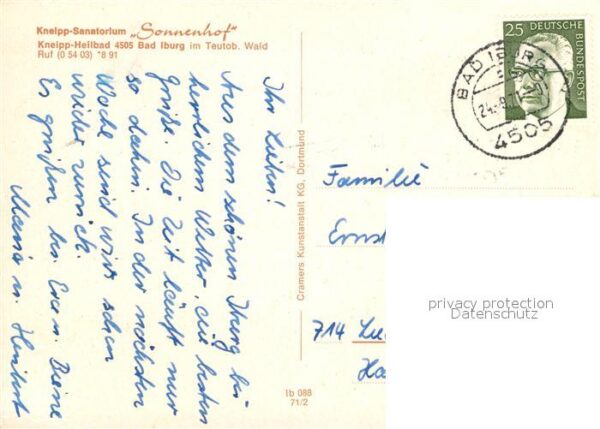 Kneipp-Sanatorium „Sonnenhof"
Kneipp-Heilbad 4505 Bad Iburg im Teutob. Wald
Ruf (0 54 03) *8 91
Ihr Lieben!
Aus dem schönen Iburg bei
herrlichem Wetter, die besten
Grüße. Die Zeit läuft nur
so dahin. In der nächsten
Woche sind wir schon
wieder zurück.
Es grüßen
Maria u. Heribert
Cramers Kunstanstalt KG, Dortmund
Ib 088
71/2
25 DEUTSCHE BUNDESPOST
BAD IBURG
4505
Familie
Ernst
714
privacy protection
Datenschutz